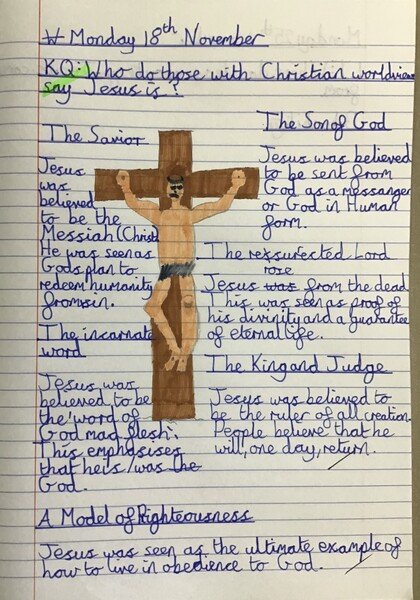 W Monday 18th November
KQ: Who do those with Christian worldviews
say Jesus is?
The Savior
Jesus
was
believed
to be the
Messiah (Christ)
He was seen as
Gods plan to
redeem humanity
from sin.
The incarnate
word
Jesus was
believed to be
the 'word of
God mad flesh'.
This emphasises
that he is / was the
God.
The Son of God
Jesus was believed
to be sent from
God as a messanger
or God in Human
form.
The ressurected Lord
rose
Jesus was from the dead
This was seen as proof of
his divinity and a guarantee
of eternal life.
The King and Judge
Jesus was believed to
be the ruler of all creation.
People believe that he
will, one day, return.
A Model of Righteousness
Jesus was seen as the ultimate example of
how to live in obedience to God.